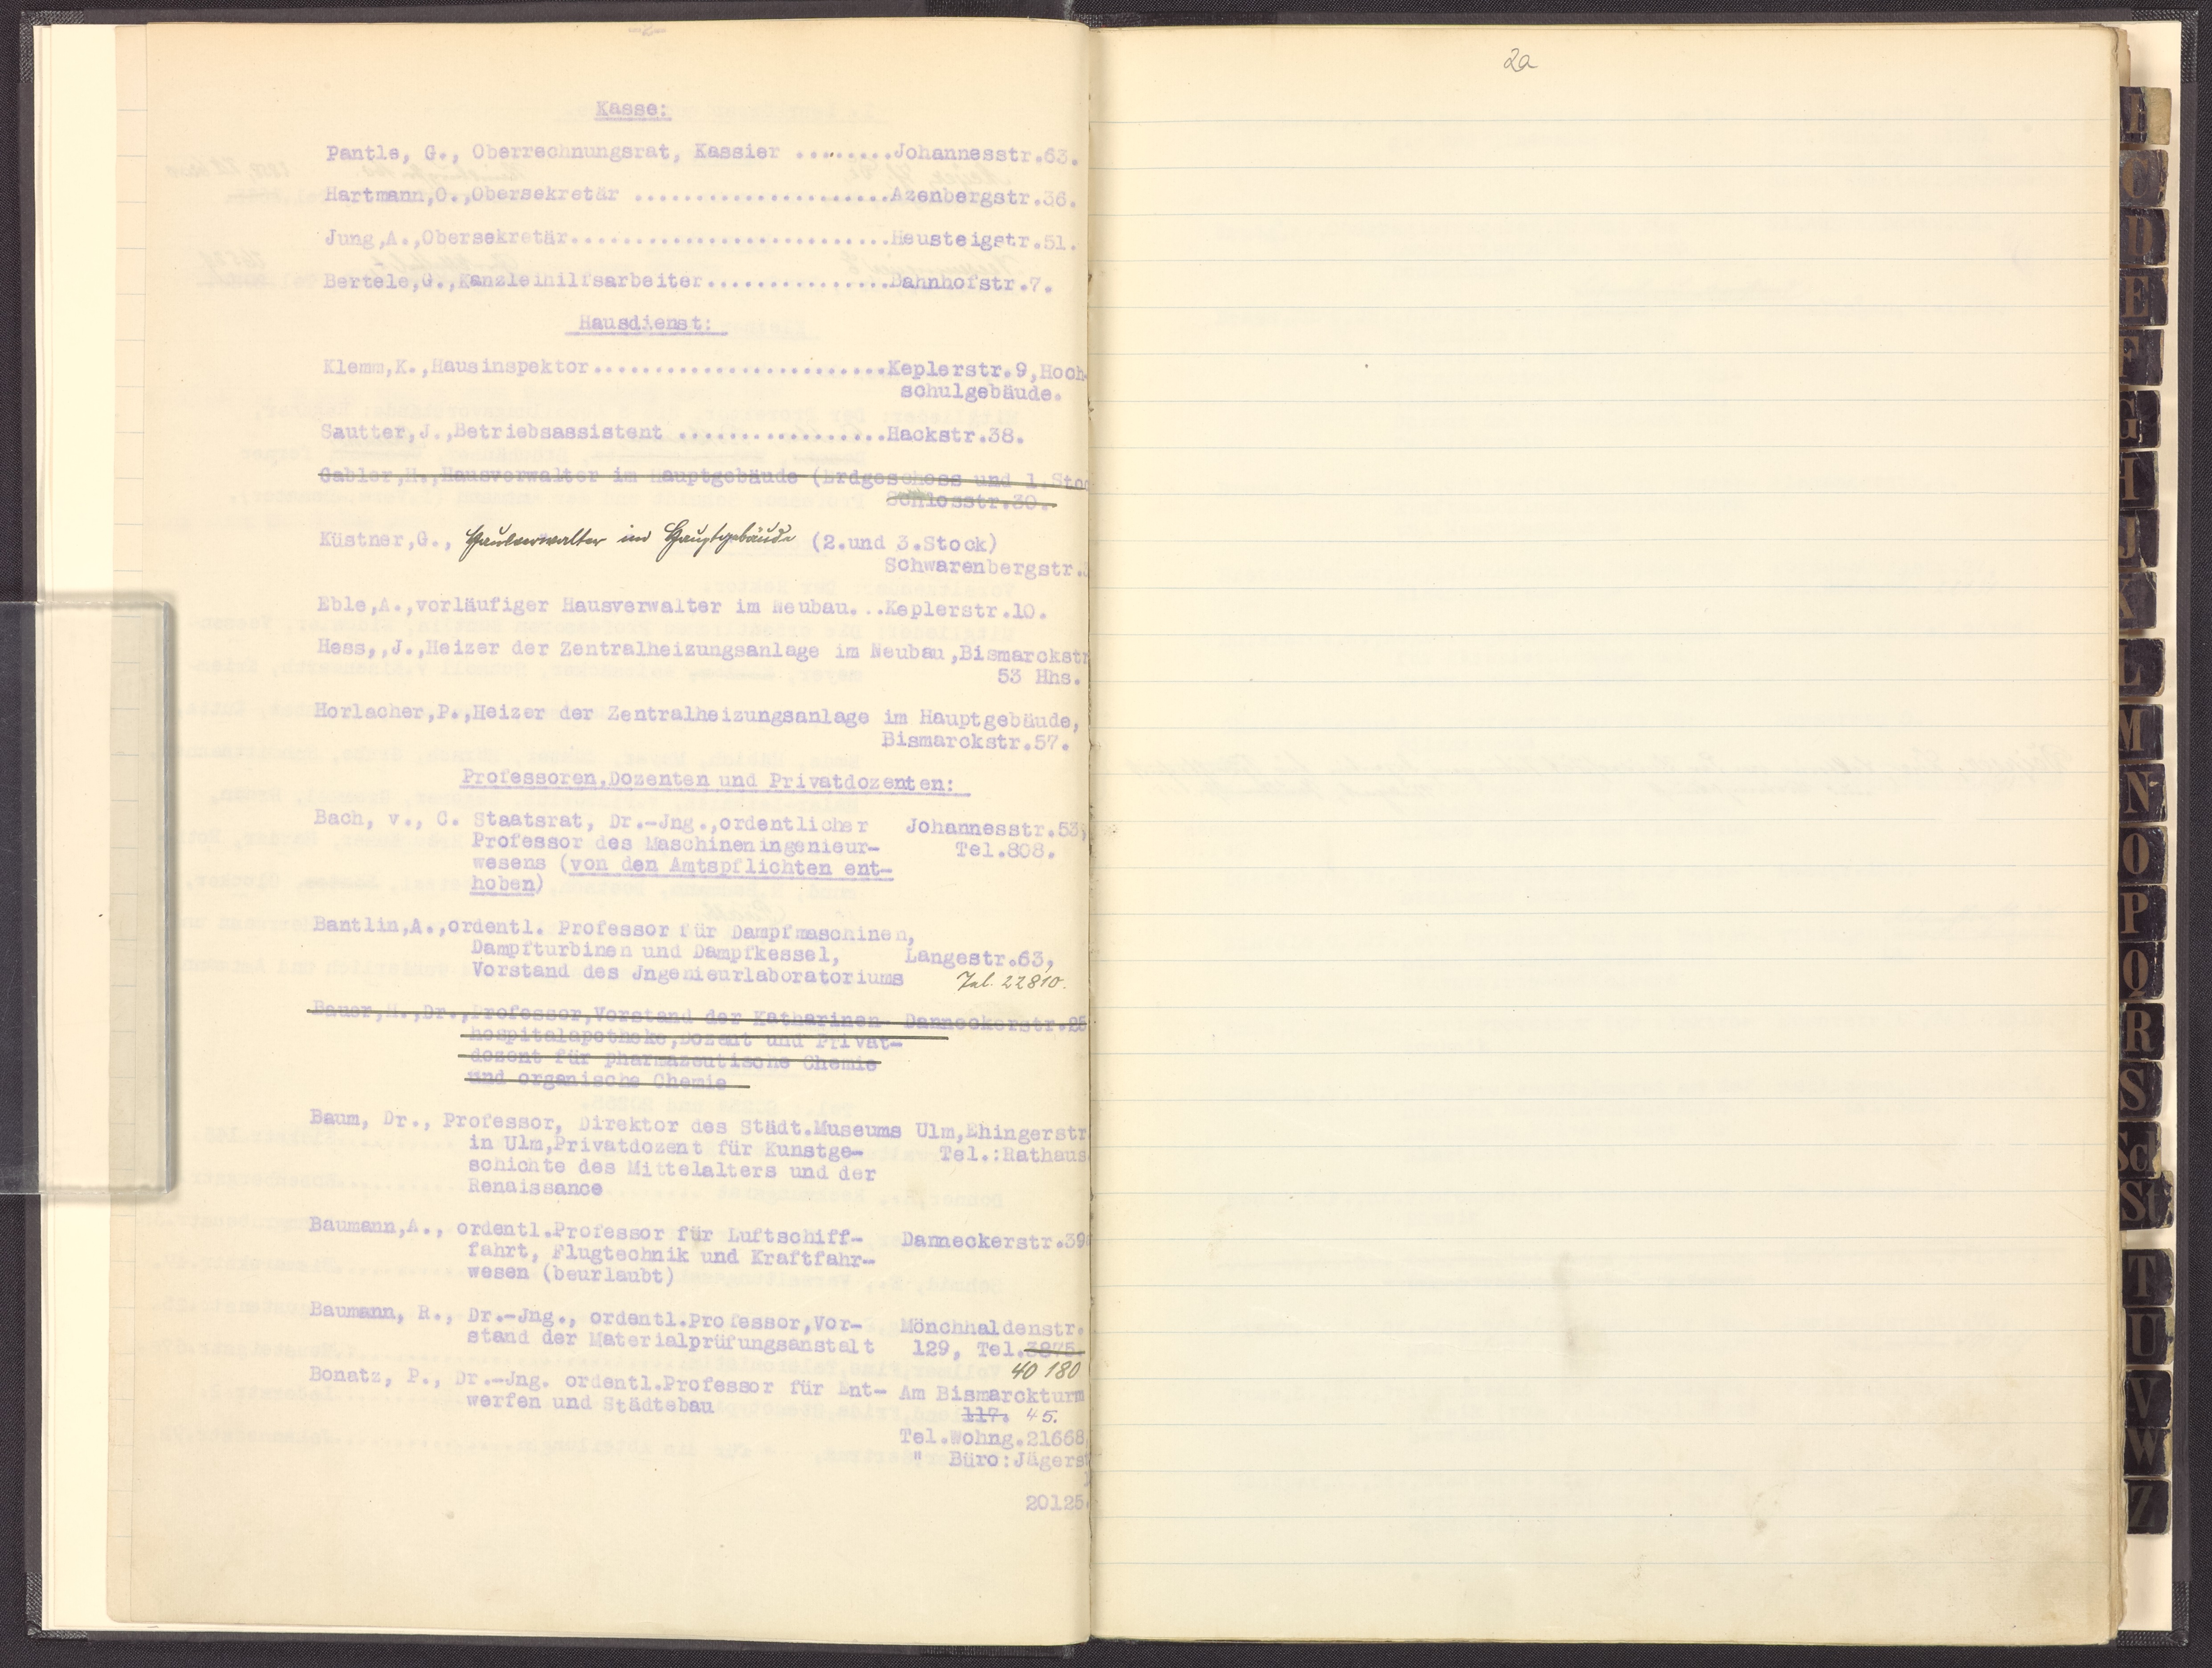 Kasse:
Pantle, G., Oberrechnungsrat, Kassier ........Johannesstr.63.
Hartmann,O.,Obersekretär .....................Azenbergstr.36.
Jung,A.,Obersekretär..........................Heusteigstr.51.
Bertele,G.,Kanzleihilfsarbeiter...............Bahnhofstr.7.
Hausdienst:
Klemm,K.,Hausinspektor........................Keplerstr.9,Hoch-
schulgebäude.
Sautter,J.,Betriebsassistent .................Hackstr.38.
Gabler,H.,Hausverwalter im Hauptgebäude (Erdgeschoss und 1.Stoc
Schlosstr.30.
Küstner,G., Hausverwalter im Hauptgebäude (2.und 3.Stock)
Schwarenbergstr.
Eble,A.,vorläufiger Hausverwalter im Neubau...Keplerstr.10.
Hess,,J.,Heizer der Zentralheizungsanlage im Neubau,Bismarckstr
53 Hhs.
Horlacher,P.,Heizer der Zentralheizungsanlage im Hauptgebäude,
Bismarckstr.57.
Professoren,Dozenten und Privatdozenten:
Bach, v., C. Staatsrat, Dr.-Jng.,ordentlicher Johannesstr.53,
Professor des Maschineningenieur- Tel.808.
wesens (von den Amtspflichten ent-
hoben)
Bantlin,A.,ordentl. Professor für Dampfmaschinen,
Dampfturbinen und Dampfkessel, Langestr.63,
Vorstand des Jngenieurlaboratoriums Tel. 22810.
Bauer,H.,Dr.,Professor,Vorstand der Katharinen- Danneckerstr.25
hospitalapotheke,Dozent und Privat-
dozent für pharmazeutische Chemie
und organische Chemie
Baum, Dr., Professor, Direktor des Städt.Museums Ulm,Ehingerstr
in Ulm,Privatdozent für Kunstge- Tel.:Rathaus
schichte des Mittelalters und der
Renaissance
Baumann,A., ordentl.Professor für Luftschiff- Danneckerstr.39
fahrt, Flugtechnik und Kraftfahr-
wesen (beurlaubt)
Baumann, R., Dr.-Jng., ordentl.Professor,Vor- Mönchhaldenstr.
stand der Materialprüfungsanstalt 129, Tel.3875.
40 180
Bonatz, P., Dr.-Jng. ordentl.Professor für Ent- Am Bismarckturm
werfen und Städtebau 117. 45.
Tel.Wohng.21668
" Büro:Jägers
20125
2a
C
D
E
F
G
H
J
K
L
M
N
O
P
Q
R
S
Sch
St
T
U
V
W
Z